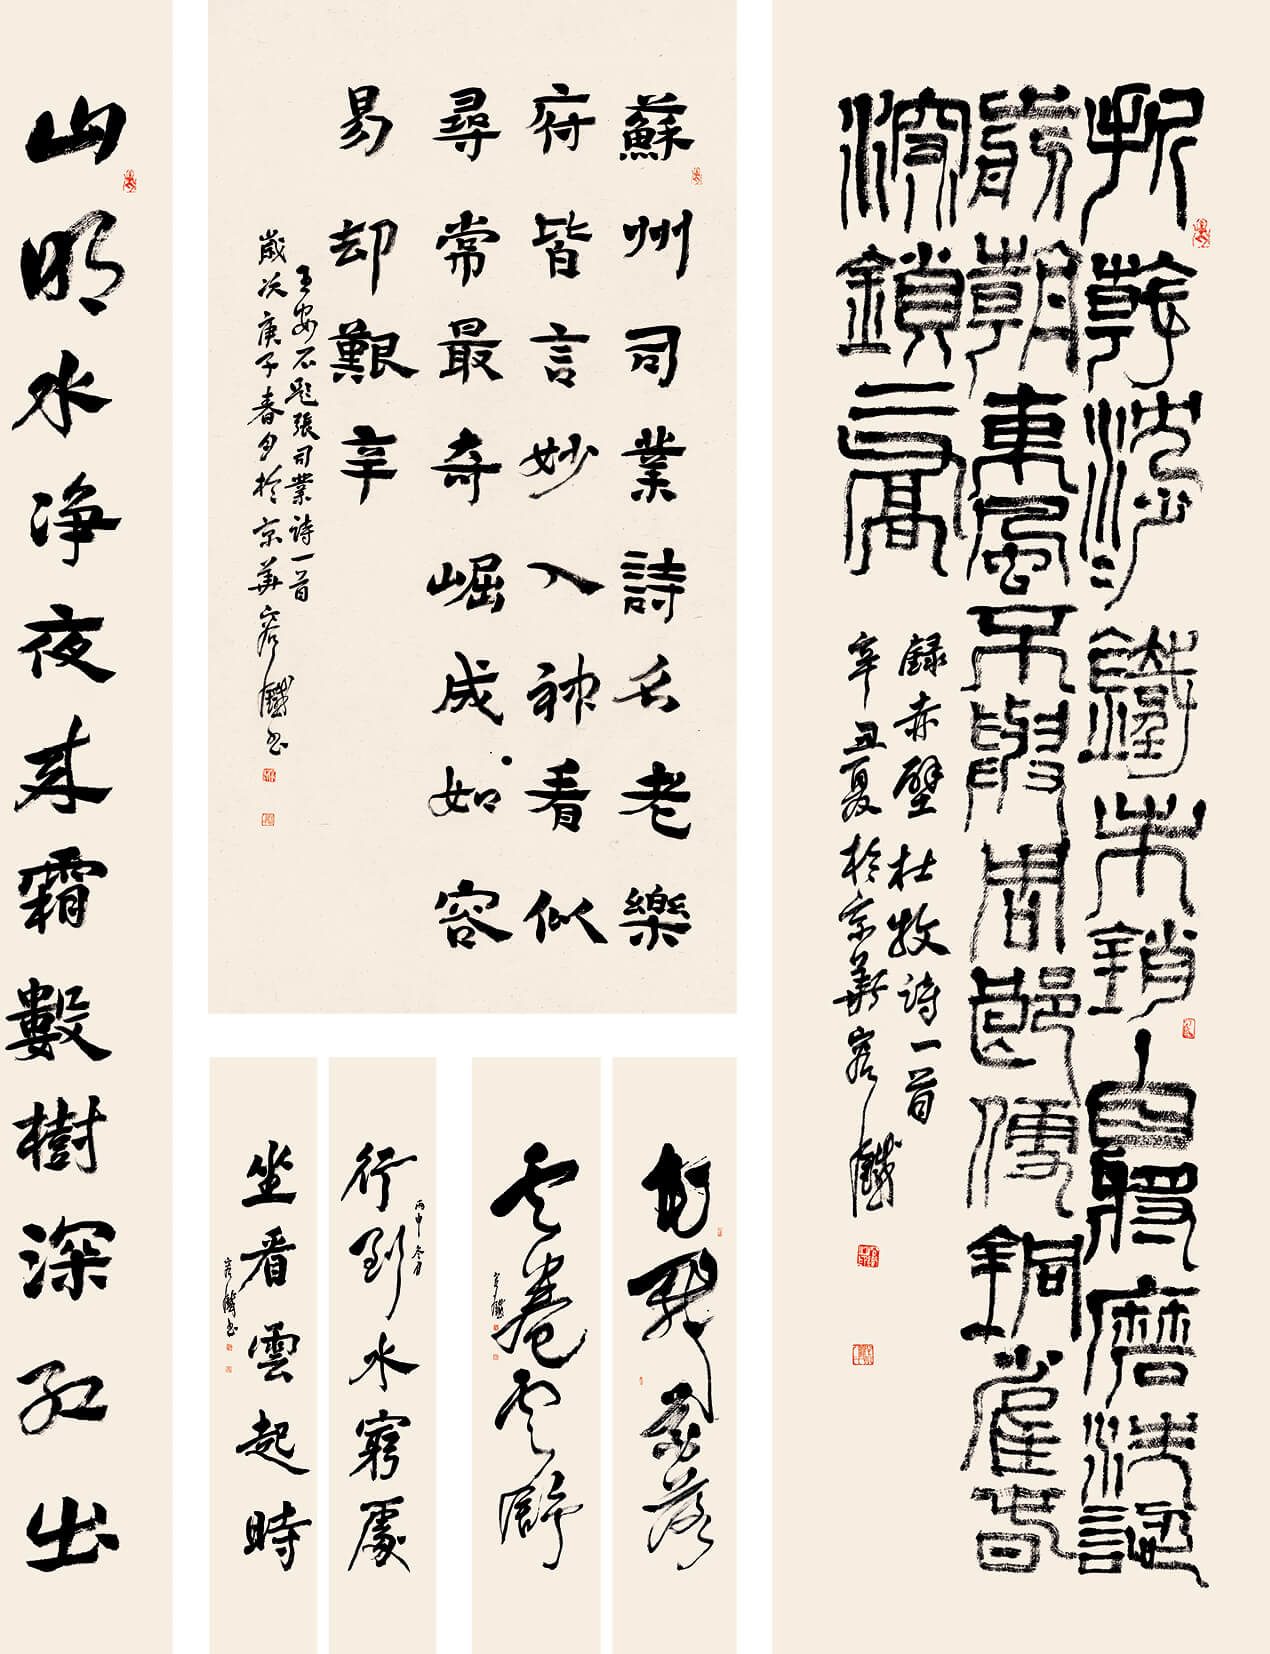 折戟沈沙鐵未銷自將磨洗認
前朝東風不與周郎便銅雀春
深鎖二喬
錄赤壁杜牧詩一首
辛丑夏於京華容鐵
蘇州司業詩名老樂
府皆言妙入神看似
尋常最奇崛成如容
易却艱辛
王安石題張司業詩一首
歲次庚子春月於京華容鐵書
花開花落
云卷云舒
容鐵
丙申冬月
行到水窮處
坐看雲起時
容鐵書
山明水净夜來霜數樹深紅出